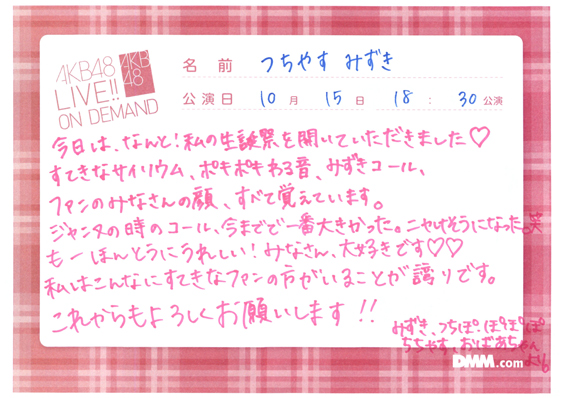 AKB48
LIVE!!
ON DEMAND
AKB
48
名前 つちやす みずき
公演日 10月 15日 18:30公演
今日は、なんと!私の生誕祭を開いていただきました♡
すてきなサイリウム、ポキポキわる音、みずきコール、
ファンのみなさんの顔、すべて覚えています。
ジャンタの時のコール、今までで一番大きかった。ニヤけそうになった。笑
もーほんとうにうれしい!みなさん、大好きです♡♡
私はこんなにすてきなファンの方がいることが誇りです。
これからもよろしくお願いします!!
みずき、つちぽ。ぽぽぽ
ちちやす、おばあちゃん
より
DMM.com